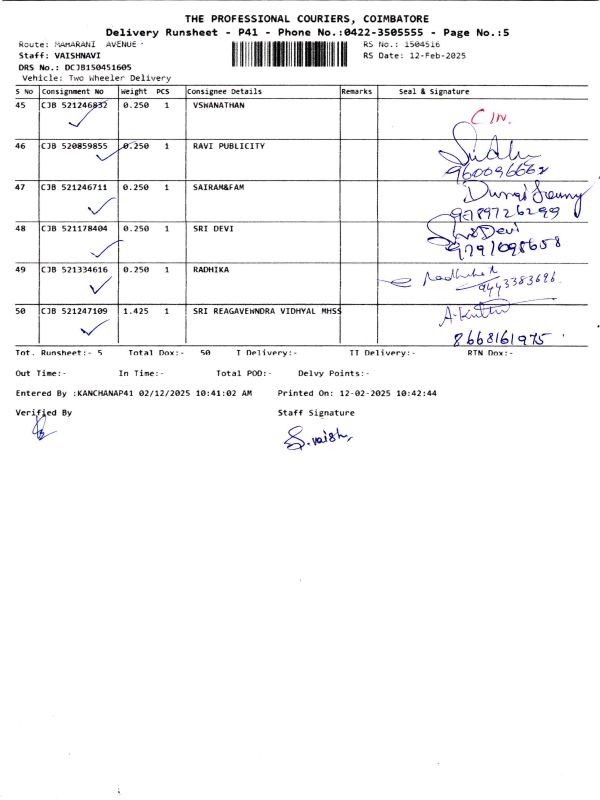 THE PROFESSIONAL COURIERS, COIMBATORE
Delivery Runsheet - P41 - Phone No.:0422-3505555 - Page No.:5
Route: MAHARANI AVENUE RS No.: 1504516
Staff: VAISHNAVI RS Date: 12-Feb-2025
DRS No.: DCJB150451605
Vehicle: Two Wheeler Delivery
S No Consignment No Weight PCS Consignee Details Remarks Seal & Signature
45 CJB 521246832 0.250 1 VSWANATHAN
46 CJB 520859855 0.250 1 RAVI PUBLICITY
9600966662
47 CJB 521246711 0.250 1 SAIRAM&FAM
9789726299
48 CJB 521178404 0.250 1 SRI DEVI Sri Devi
9791098658
49 CJB 521334616 0.250 1 RADHIKA Radhika R
9443383686
50 CJB 521247109 1.425 1 SRI REAGAVEWNDRA VIDHYAL MHSS
8668161975
Tot. Runsheet:- 5 Total Dox:- 50 I Delivery:- II Delivery:- RTN Dox:-
Out Time:- In Time:- Total POD:- Delvy Points:-
Entered By :KANCHANAP41 02/12/2025 10:41:02 AM Printed On: 12-02-2025 10:42:44
Verified By Staff Signature
S.vaish